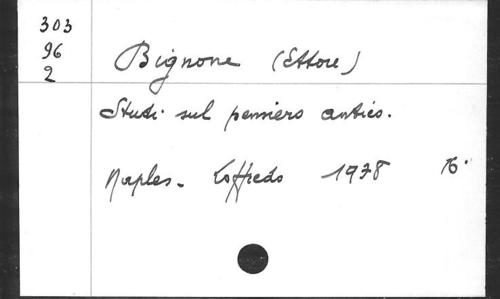 303
96
2
Bignone (Ettore)
Studi sul pensiero antico.
Naples. Loffredo 1938 16°